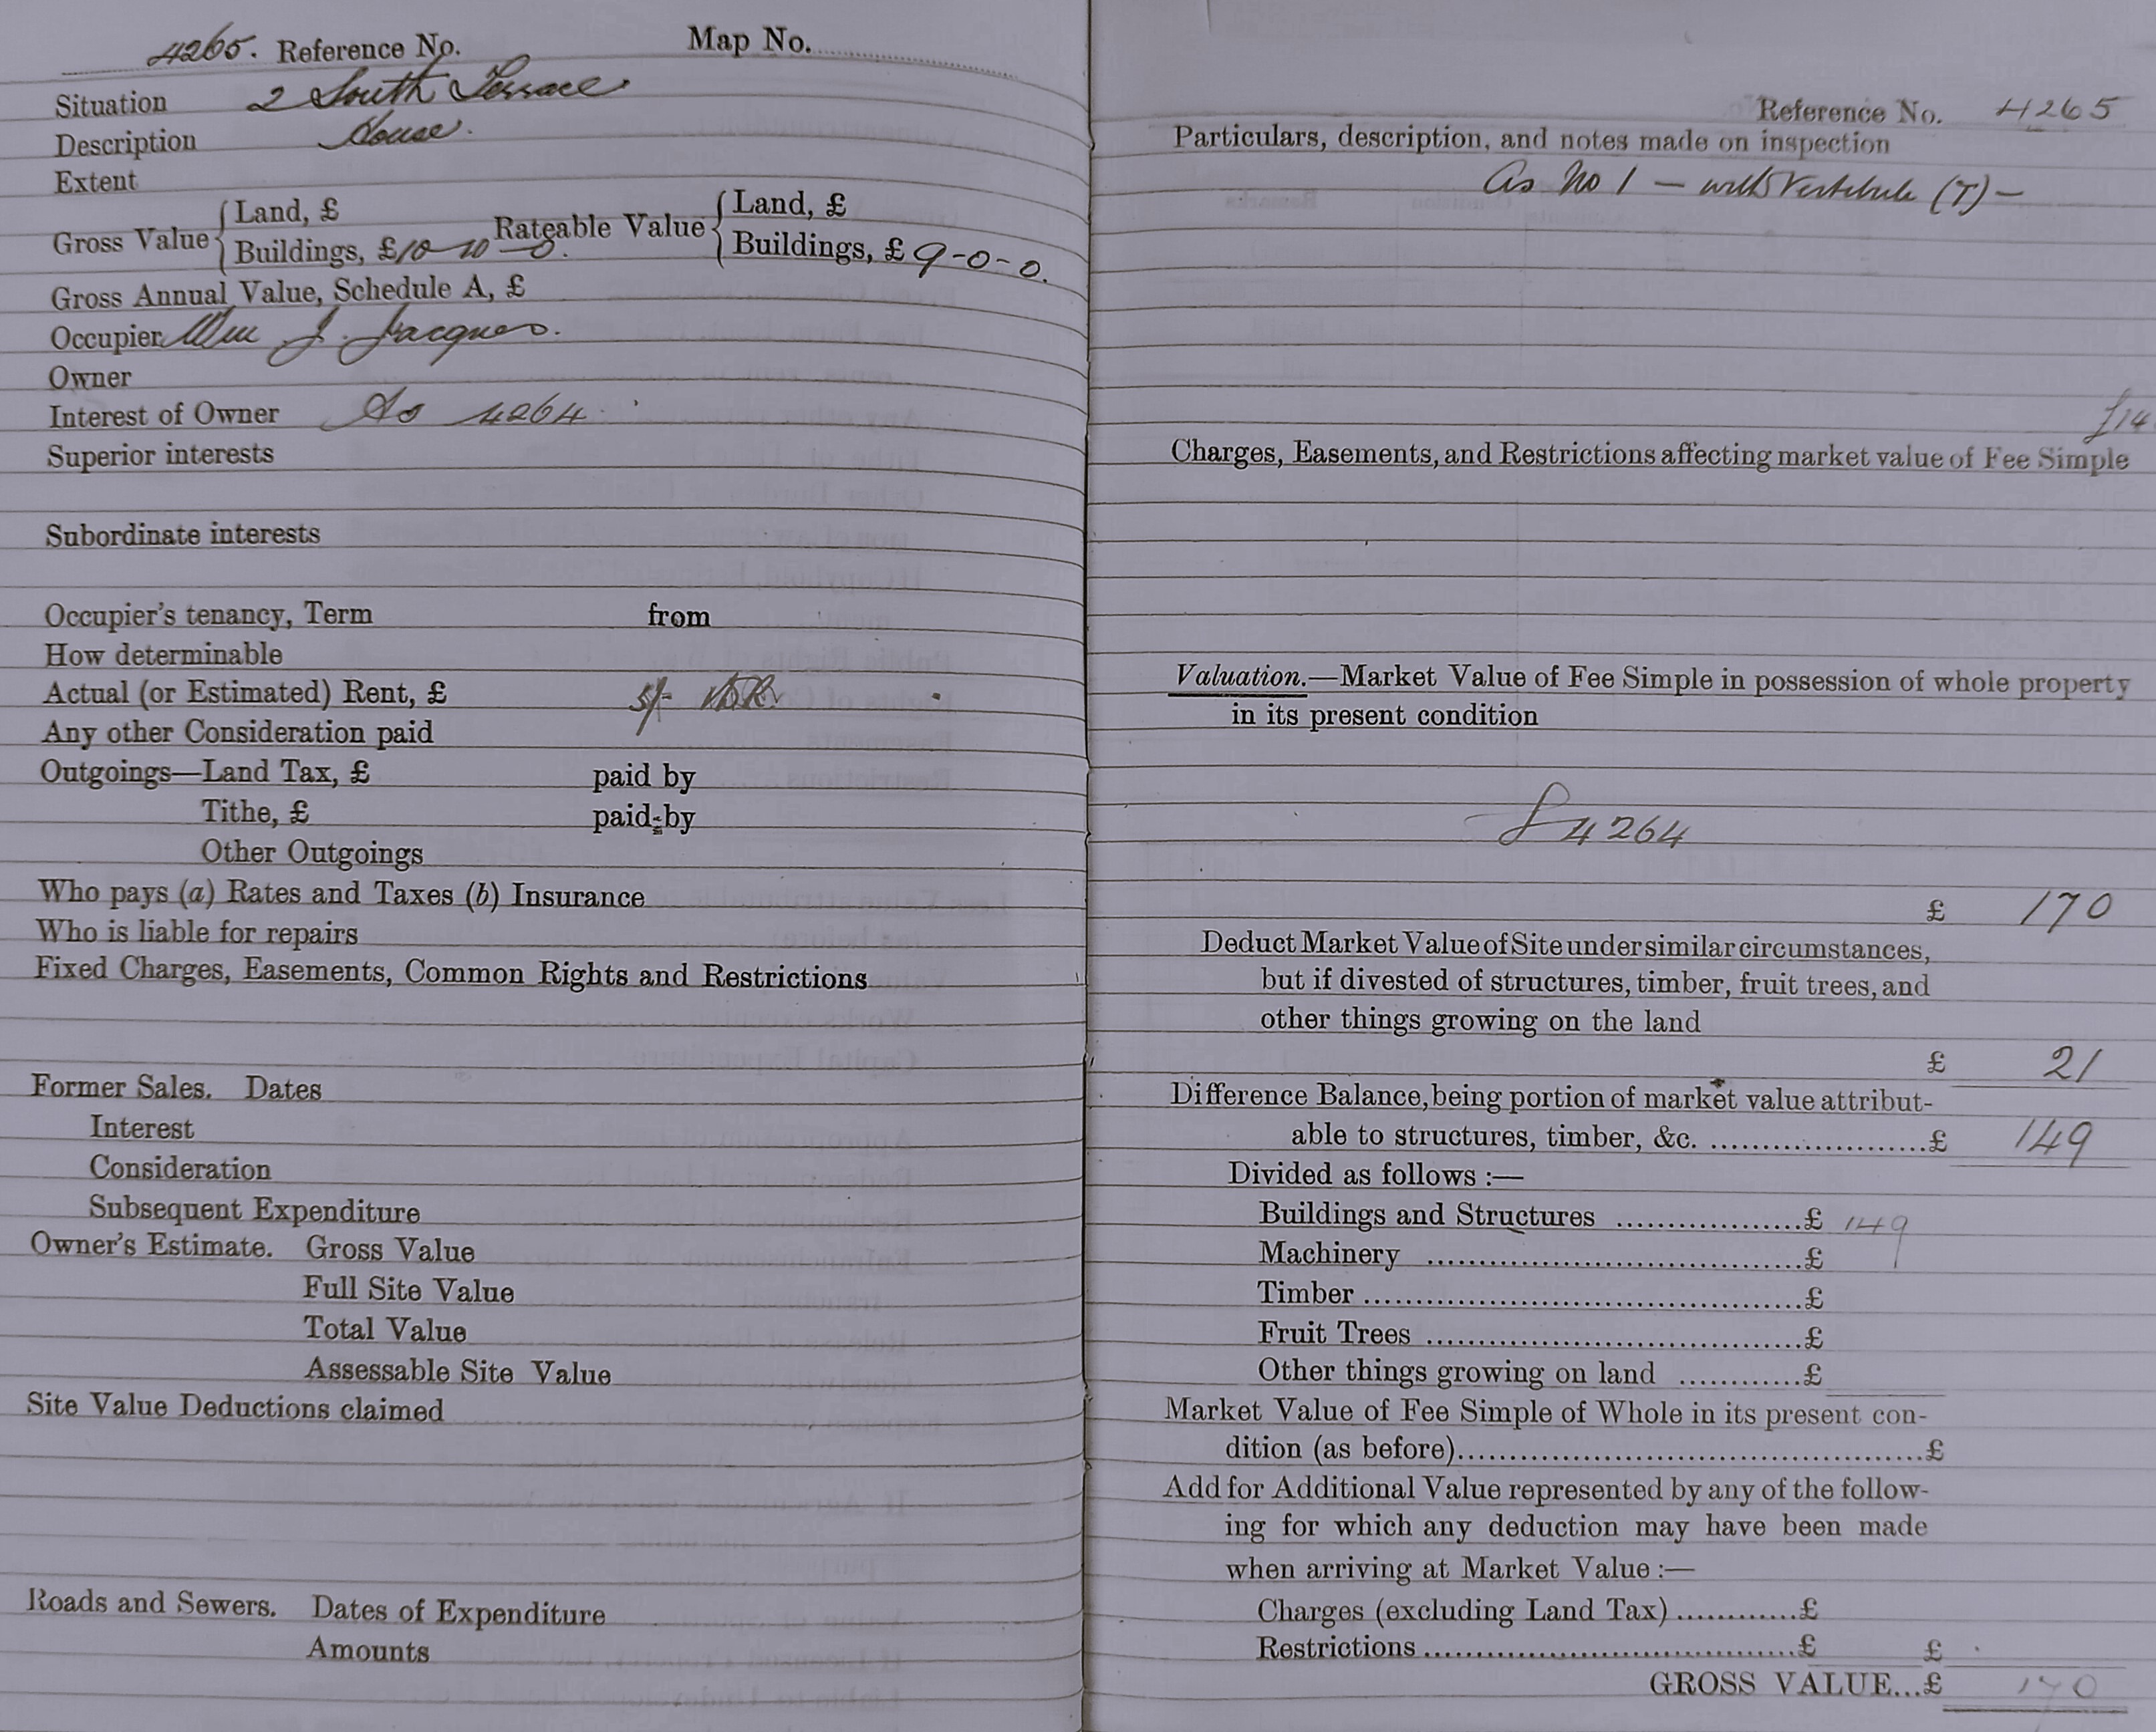 4265. Reference No. Map No.
Situation 2 South Terrace
Description House.
Extent
Gross Value { Land, £ Rateable Value { Land, £
Buildings, £10-10-0. Buildings, £ 9-0-0.
Gross Annual Value, Schedule A, £
Occupier Wm J. Jacques.
Owner
Interest of Owner As 4264.
Superior interests
Subordinate interests
Occupier's tenancy, Term from
How determinable
Actual (or Estimated) Rent, £ 5/-
Any other Consideration paid
Outgoings—Land Tax, £ paid by
Tithe, £ paid by
Other Outgoings
Who pays (a) Rates and Taxes (b) Insurance
Who is liable for repairs
Fixed Charges, Easements, Common Rights and Restrictions
Former Sales. Dates
Interest
Consideration
Subsequent Expenditure
Owner's Estimate. Gross Value
Full Site Value
Total Value
Assessable Site Value
Site Value Deductions claimed
Roads and Sewers. Dates of Expenditure
Amounts
Reference No. 4265
Particulars, description, and notes made on inspection
As No 1 — with Vestibule (T) —
£14
Charges, Easements, and Restrictions affecting market value of Fee Simple
Valuation.—Market Value of Fee Simple in possession of whole property
in its present condition
4264
£ 170
Deduct Market Value of Site under similar circumstances,
but if divested of structures, timber, fruit trees, and
other things growing on the land
£ 21
Difference Balance, being portion of market value attribut-
able to structures, timber, &c. ....................£ 149
Divided as follows :—
Buildings and Structures ..................£ 149
Machinery ....................................£
Timber ..........................................£
Fruit Trees ....................................£
Other things growing on land ............£
Market Value of Fee Simple of Whole in its present con-
dition (as before)............................................£
Add for Additional Value represented by any of the follow-
ing for which any deduction may have been made
when arriving at Market Value :—
Charges (excluding Land Tax) ............£
Restrictions ....................................£ £
GROSS VALUE...£ 170